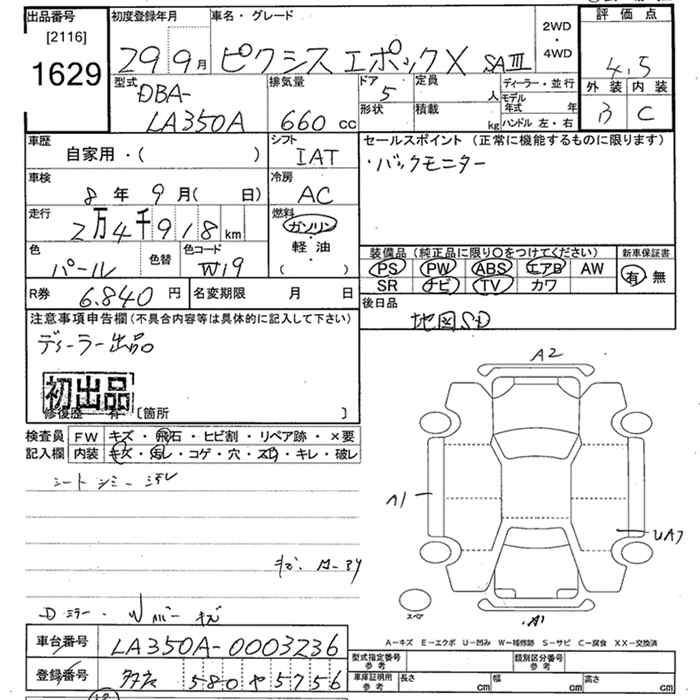 出品番号 初度登録年月 車名・グレード 2WD・4WD 評価点
[2116]
1629
29 9月 ピクシス エポック X SAⅢ 4.5
型式 排気量 ドア 定員 ディーラー・並行 外装 内装
DBA- 5 人 モデル年式 年 B C
形状 積載
LA350A 660 cc kg ハンドル 左・右
車歴 シフト セールスポイント (正常に機能するものに限ります)
自家用・( ) IAT ・バックモニター
車検 冷房
8年 9月( 日) AC
走行 燃料
2万4千918 km ガソリン
軽・油
( )
色 色替 色コード 装備品 (純正品に限り○をつけてください) 新車保証書
パール W19 PS PW ABS エアB AW 有・無
SR ナビ TV カワ
R券 6.840 円 名変期限 月 日 後日品
地図SD
注意事項申告欄(不具合内容等は具体的に記入して下さい)
ディーラー出品
初出品
修復歴 有 [箇所 ]
検査員 FW キズ・飛石・ヒビ割・リペア跡・×要
記入欄 内装 キズ・ヨレ・コゲ・穴・スレ・キレ・破レ
A2
A1
UA7
スペア
A1
A-キズ E-エクボ U-凹み W-補修跡 S-サビ C-腐食 XX-交換済
車台番号 LA350A-0003236
型式指定番号 参考 類別区分番号 参考
登録番号 580 や 5756
車庫証明用 参考 長さ cm 幅 cm 高さ cm